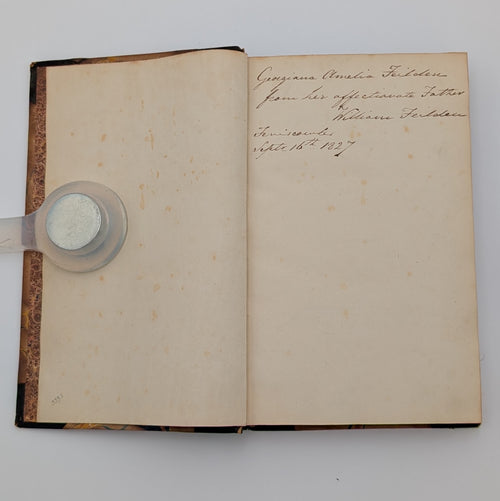 Georgiana Amelia Feilden
from her affectionate Father
William Feilden
Feniscowles
Septr. 16th 1827